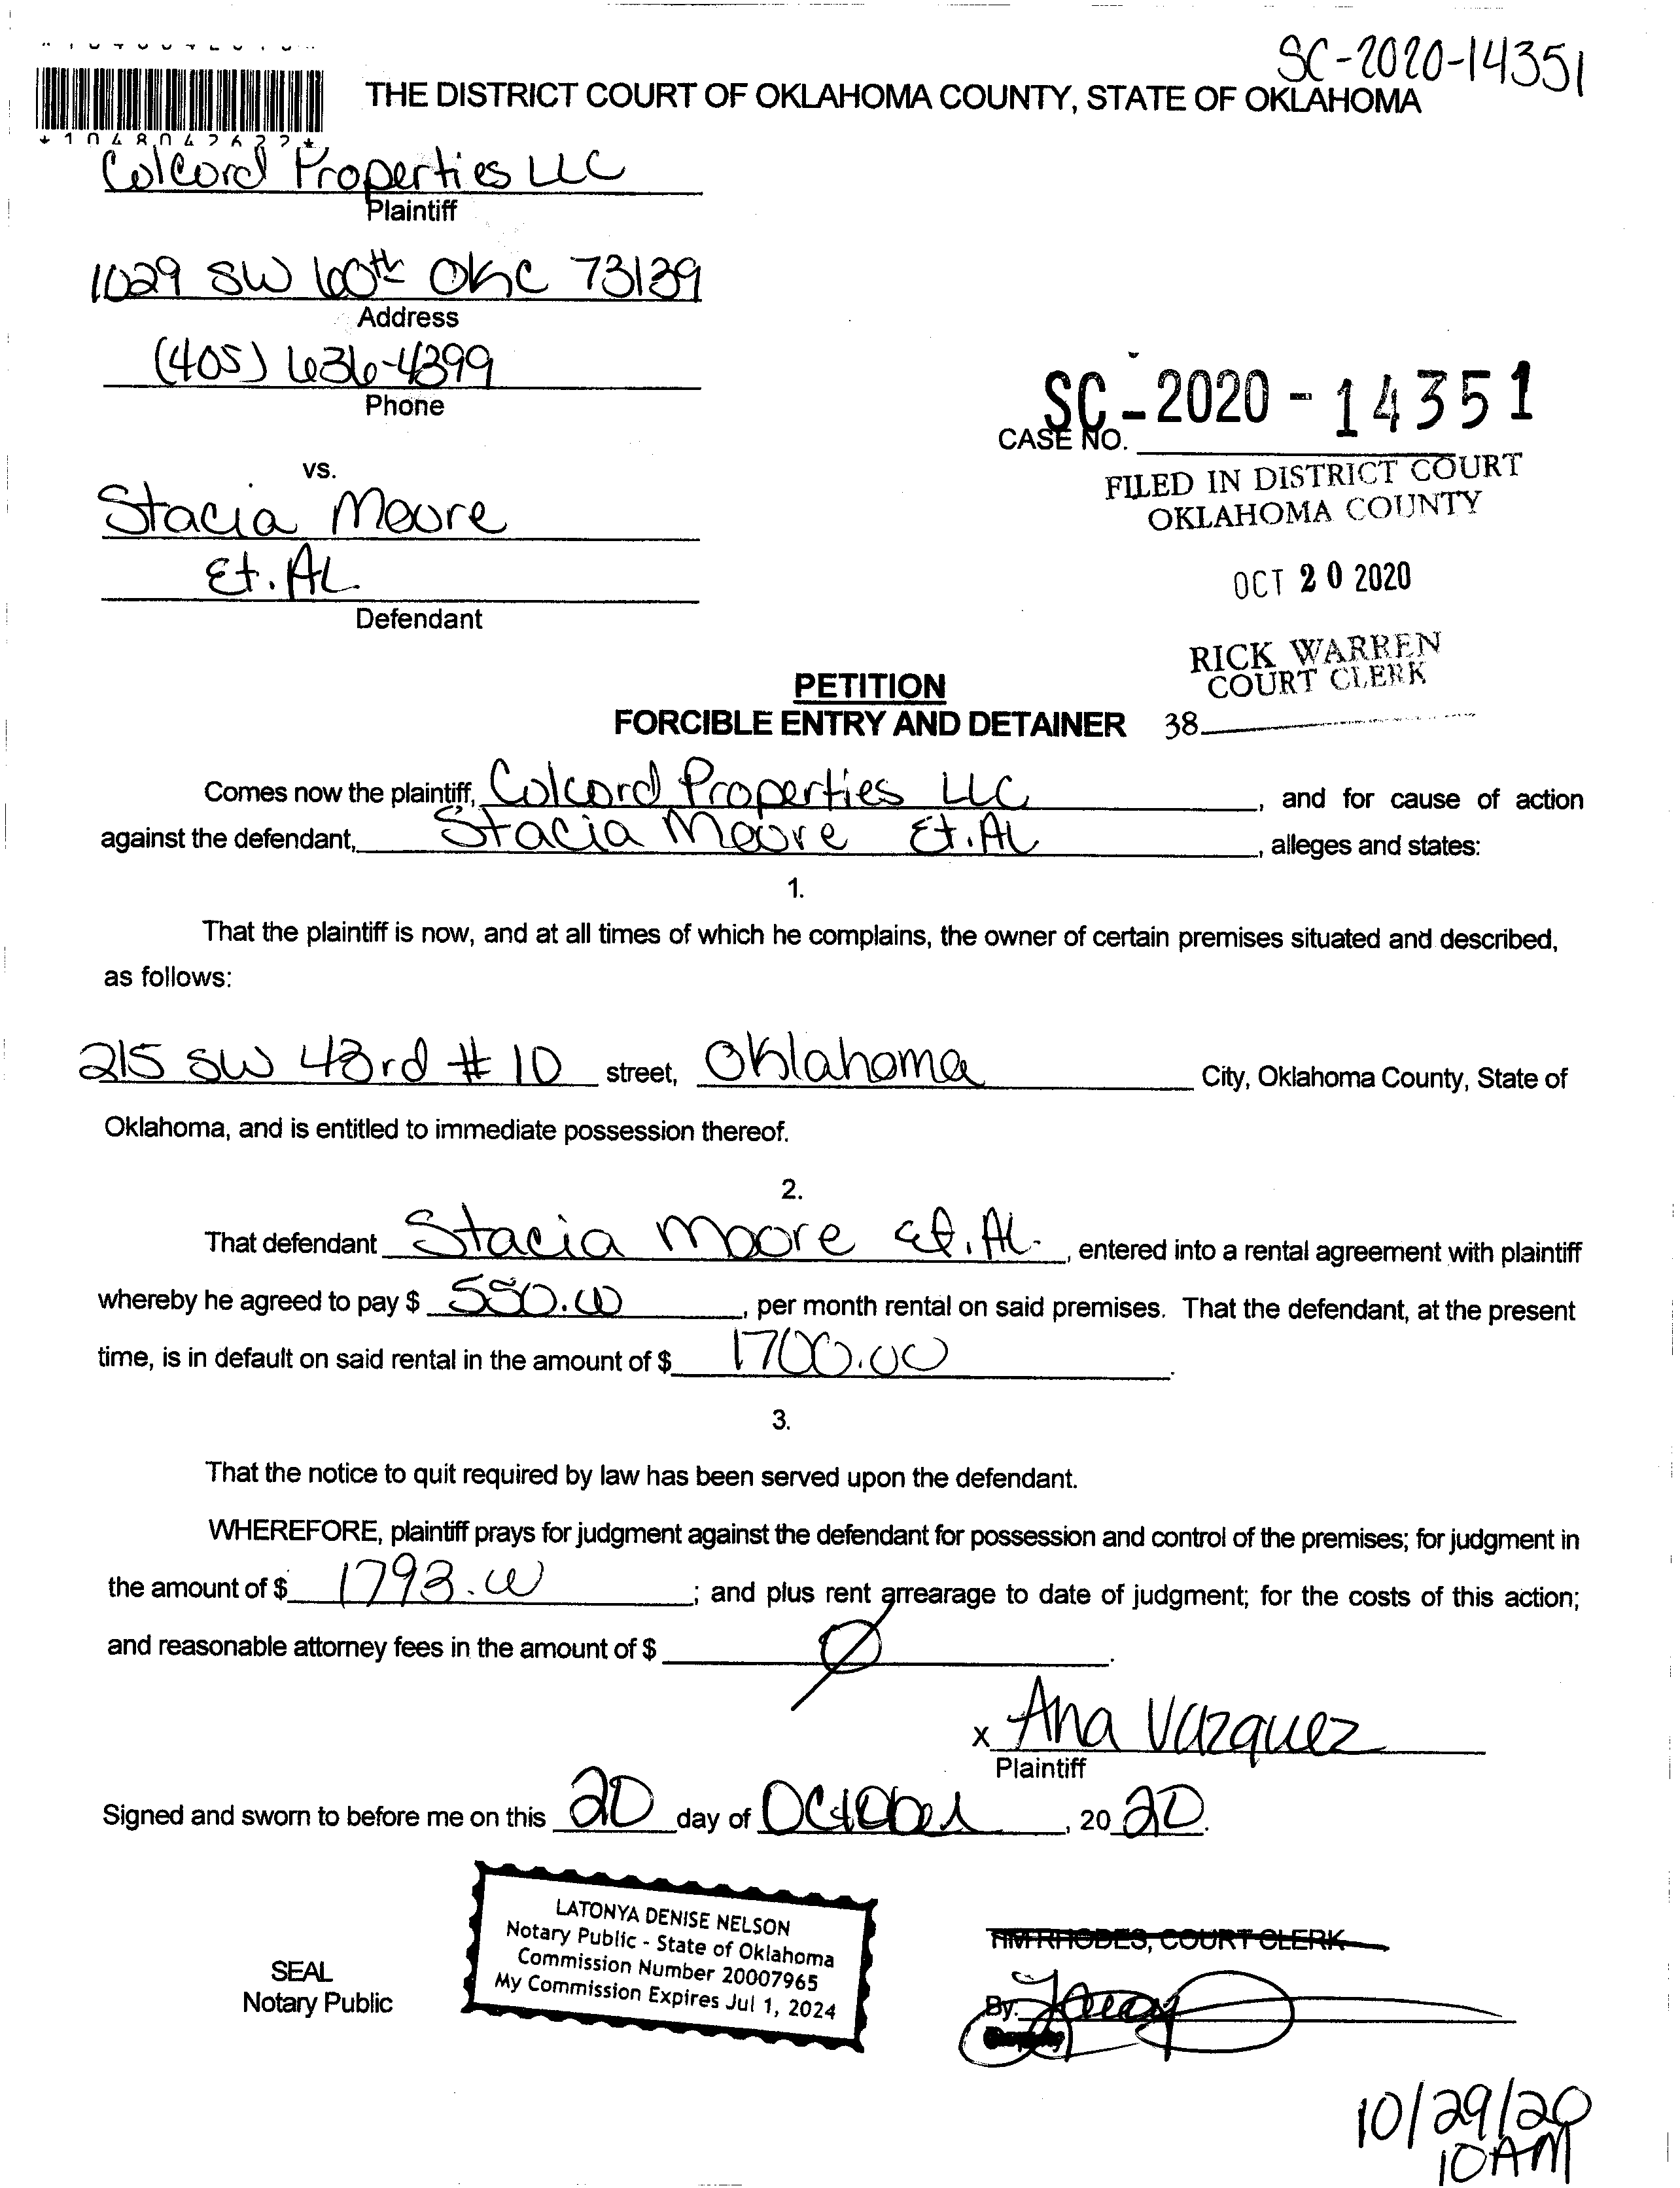 SC-2020-14351
THE DISTRICT COURT OF OKLAHOMA COUNTY, STATE OF OKLAHOMA
Colcord Properties LLC
Plaintiff
1029 SW 60th OKC 73139
Address
(405) 636-4399
Phone
SC-2020-14351
CASE NO.
vs.
FILED IN DISTRICT COURT
OKLAHOMA COUNTY
Stacia Moore
Et. AL
Defendant
OCT 20 2020
RICK WARREN
COURT CLERK
38
PETITION
FORCIBLE ENTRY AND DETAINER
Comes now the plaintiff, Colcord Properties LLC, and for cause of action
against the defendant, Stacia Moore Et. AL, alleges and states:
1.
That the plaintiff is now, and at all times of which he complains, the owner of certain premises situated and described,
as follows:
215 SW 43rd # 10 street, Oklahoma City, Oklahoma County, State of
Oklahoma, and is entitled to immediate possession thereof.
2.
That defendant Stacia Moore et. AL., entered into a rental agreement with plaintiff
whereby he agreed to pay $ 550.00, per month rental on said premises. That the defendant, at the present
time, is in default on said rental in the amount of $ 1700.00.
3.
That the notice to quit required by law has been served upon the defendant.
WHEREFORE, plaintiff prays for judgment against the defendant for possession and control of the premises; for judgment in
the amount of $ 1793.00; and plus rent arrearage to date of judgment; for the costs of this action;
and reasonable attorney fees in the amount of $ Ø.
x Ana Vazquez
Plaintiff
Signed and sworn to before me on this 20 day of October, 20 20.
LATONYA DENISE NELSON
Notary Public - State of Oklahoma
Commission Number 20007965
My Commission Expires Jul 1, 2024
SEAL
Notary Public
TIM RHODES, COURT CLERK
By:
10/29/20
10AM